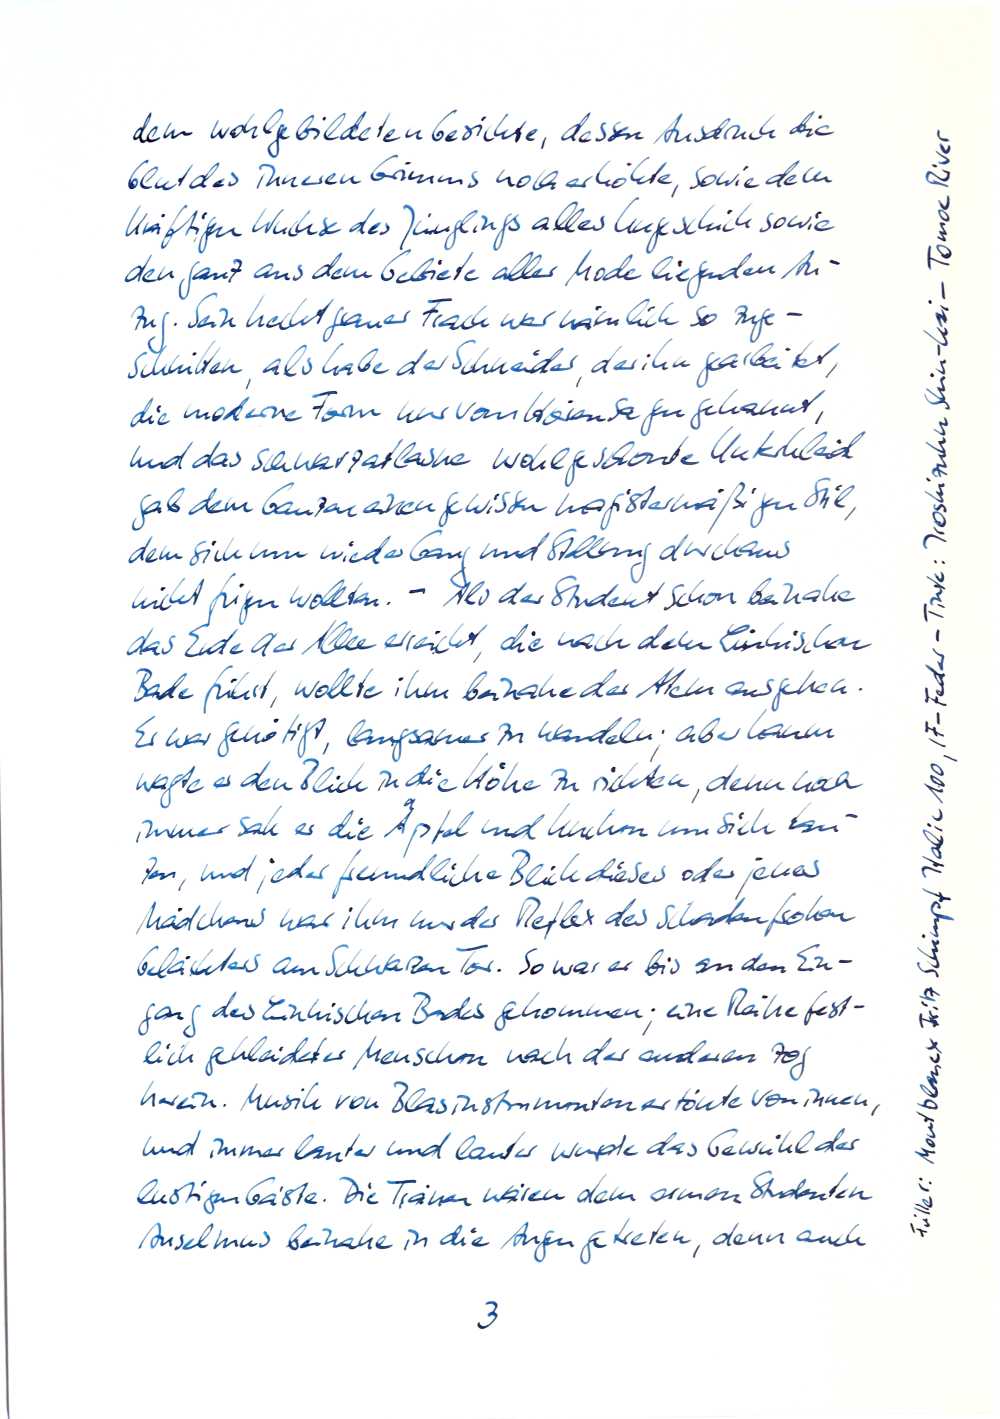 dem wohlgebildeten Gesichte, dessen Ausdruck die
Glut des inneren Grimms noch erhöhte, sowie dem
kräftigen Wuchse des Jünglings alles Ungeschick sowie
den ganz aus dem Gebiete aller Mode liegenden An-
zug. Sein hechtgrauer Frack war nämlich so zuge-
schnitten, als habe der Schneider, der ihn gearbeitet,
die moderne Form nur vom Hörensagen gekannt,
und das schwarzatlasne wohlgeschonte Unterkleid
gab dem Ganzen einen gewissen magistermäßigen Stil,
dem sich nun wieder Gang und Stellung durchaus
nicht fügen wollten. – Als der Student schon beinahe
das Ende der Allee erreicht, die nach dem Linkischen
Bade führt, wollte ihm beinahe der Atem ausgehen.
Er war genötigt, langsamer zu wandeln; aber kaum
wagte er den Blick in die Höhe zu richten, denn noch
immer sah er die Äpfel und Kuchen um sich tan-
zen, und jeder freundliche Blick dieses oder jenes
Mädchens war ihm nur der Reflex des schadenfrohen
Gelächters am Schwarzen Tor. So war er bis an den Ein-
gang des Linkischen Bades gekommen; eine Reihe fest-
lich gekleideter Menschen nach der anderen zog
herein. Musik von Blasinstrumenten ertönte von innen,
und immer lauter und lauter wurde das Gewühl der
lustigen Gäste. Die Tränen wären dem armen Studenten
Anselmus beinahe in die Augen getreten, denn auch
3
Füller: Montblanc x Fritz Schimpf Italic 100, 17-Feder – Tinte: Iroshizuku Shin-kai – Tomoe River